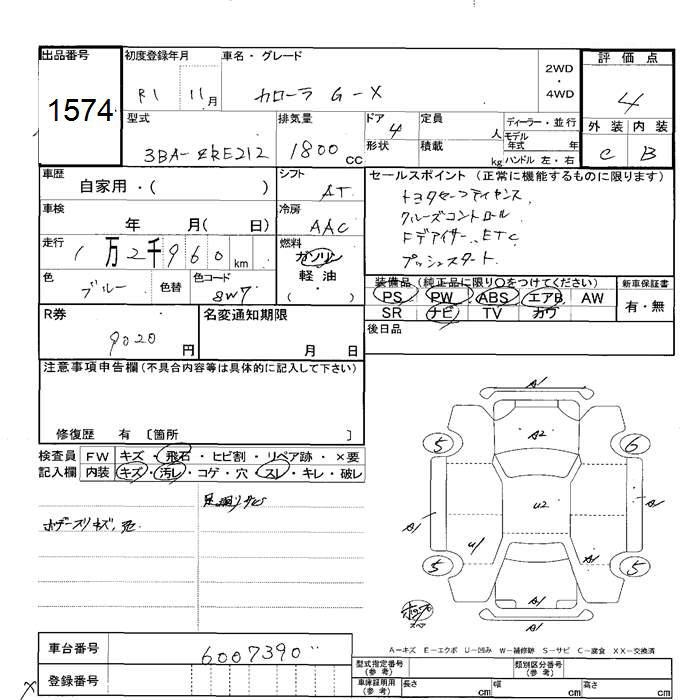 出品番号 初度登録年月 車名・グレード 2WD・4WD 評価点
1574 R1 11月 カローラ G-X 4
型式 排気量 ドア 4 定員 人 ディーラー・並行 外装 内装
モデル年式 年
3BA-ZRE212 1800cc 形状 積載 kg ハンドル 左・右 C B
車歴 シフト セールスポイント (正常に機能するものに限ります)
自家用・( ) AT トヨタセーフティセンス
車検 冷房 クルーズコントロール
年 月( 日) AAC
走行 燃料 ETC
1万2千960km ガソリン プッシュスタート
色 色替 色コード 軽油 装備品 (純正品に限り○をつけてください) 新車保証書
ブルー 8W7 ( ・ ) PS PW ABS エアB AW 有・無
R券 名変通知期限 SR ナビ TV カワ
9020円 月 日 後日品
注意事項申告欄(不具合内容等は具体的に記入して下さい)
修復歴 有 〔箇所 〕
検査員 FW キズ・飛石・ヒビ割・リペア跡・×要
記入欄 内装 キズ・汚レ・コゲ・穴・スレ・キレ・破レ
足廻りサビ
A1
A2
5 6
U2
A1 A1
U1 A1
5 5
A1
A1
スペア
A-キズ E-エクボ U-凹み W-補修跡 S-サビ C-腐食 XX-交換済
車台番号 6007390
型式指定番号(参考) 類別区分番号(参考)
登録番号 車庫証明用(参考) 長さ cm 幅 cm 高さ cm